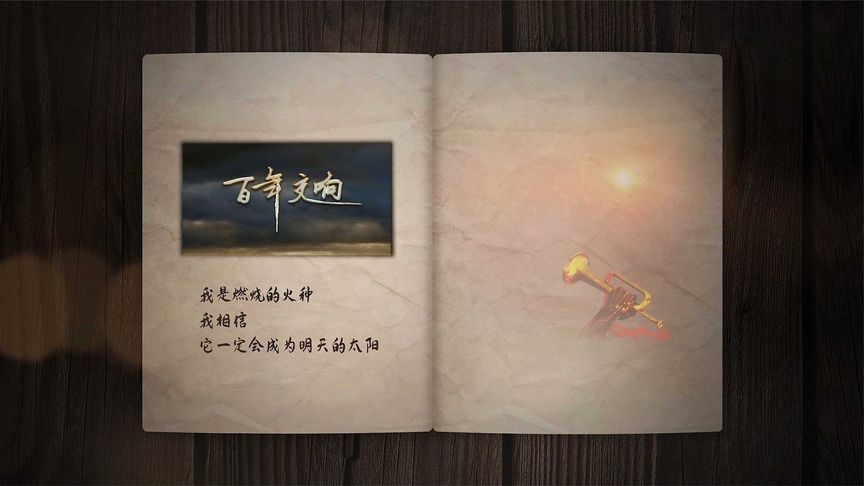 百年交响
我是燃烧的火种
我相信
它一定会成为明天的太阳